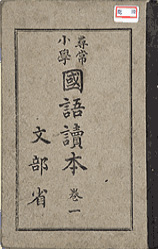 尋常
小學
國語讀本 巻一
文部省